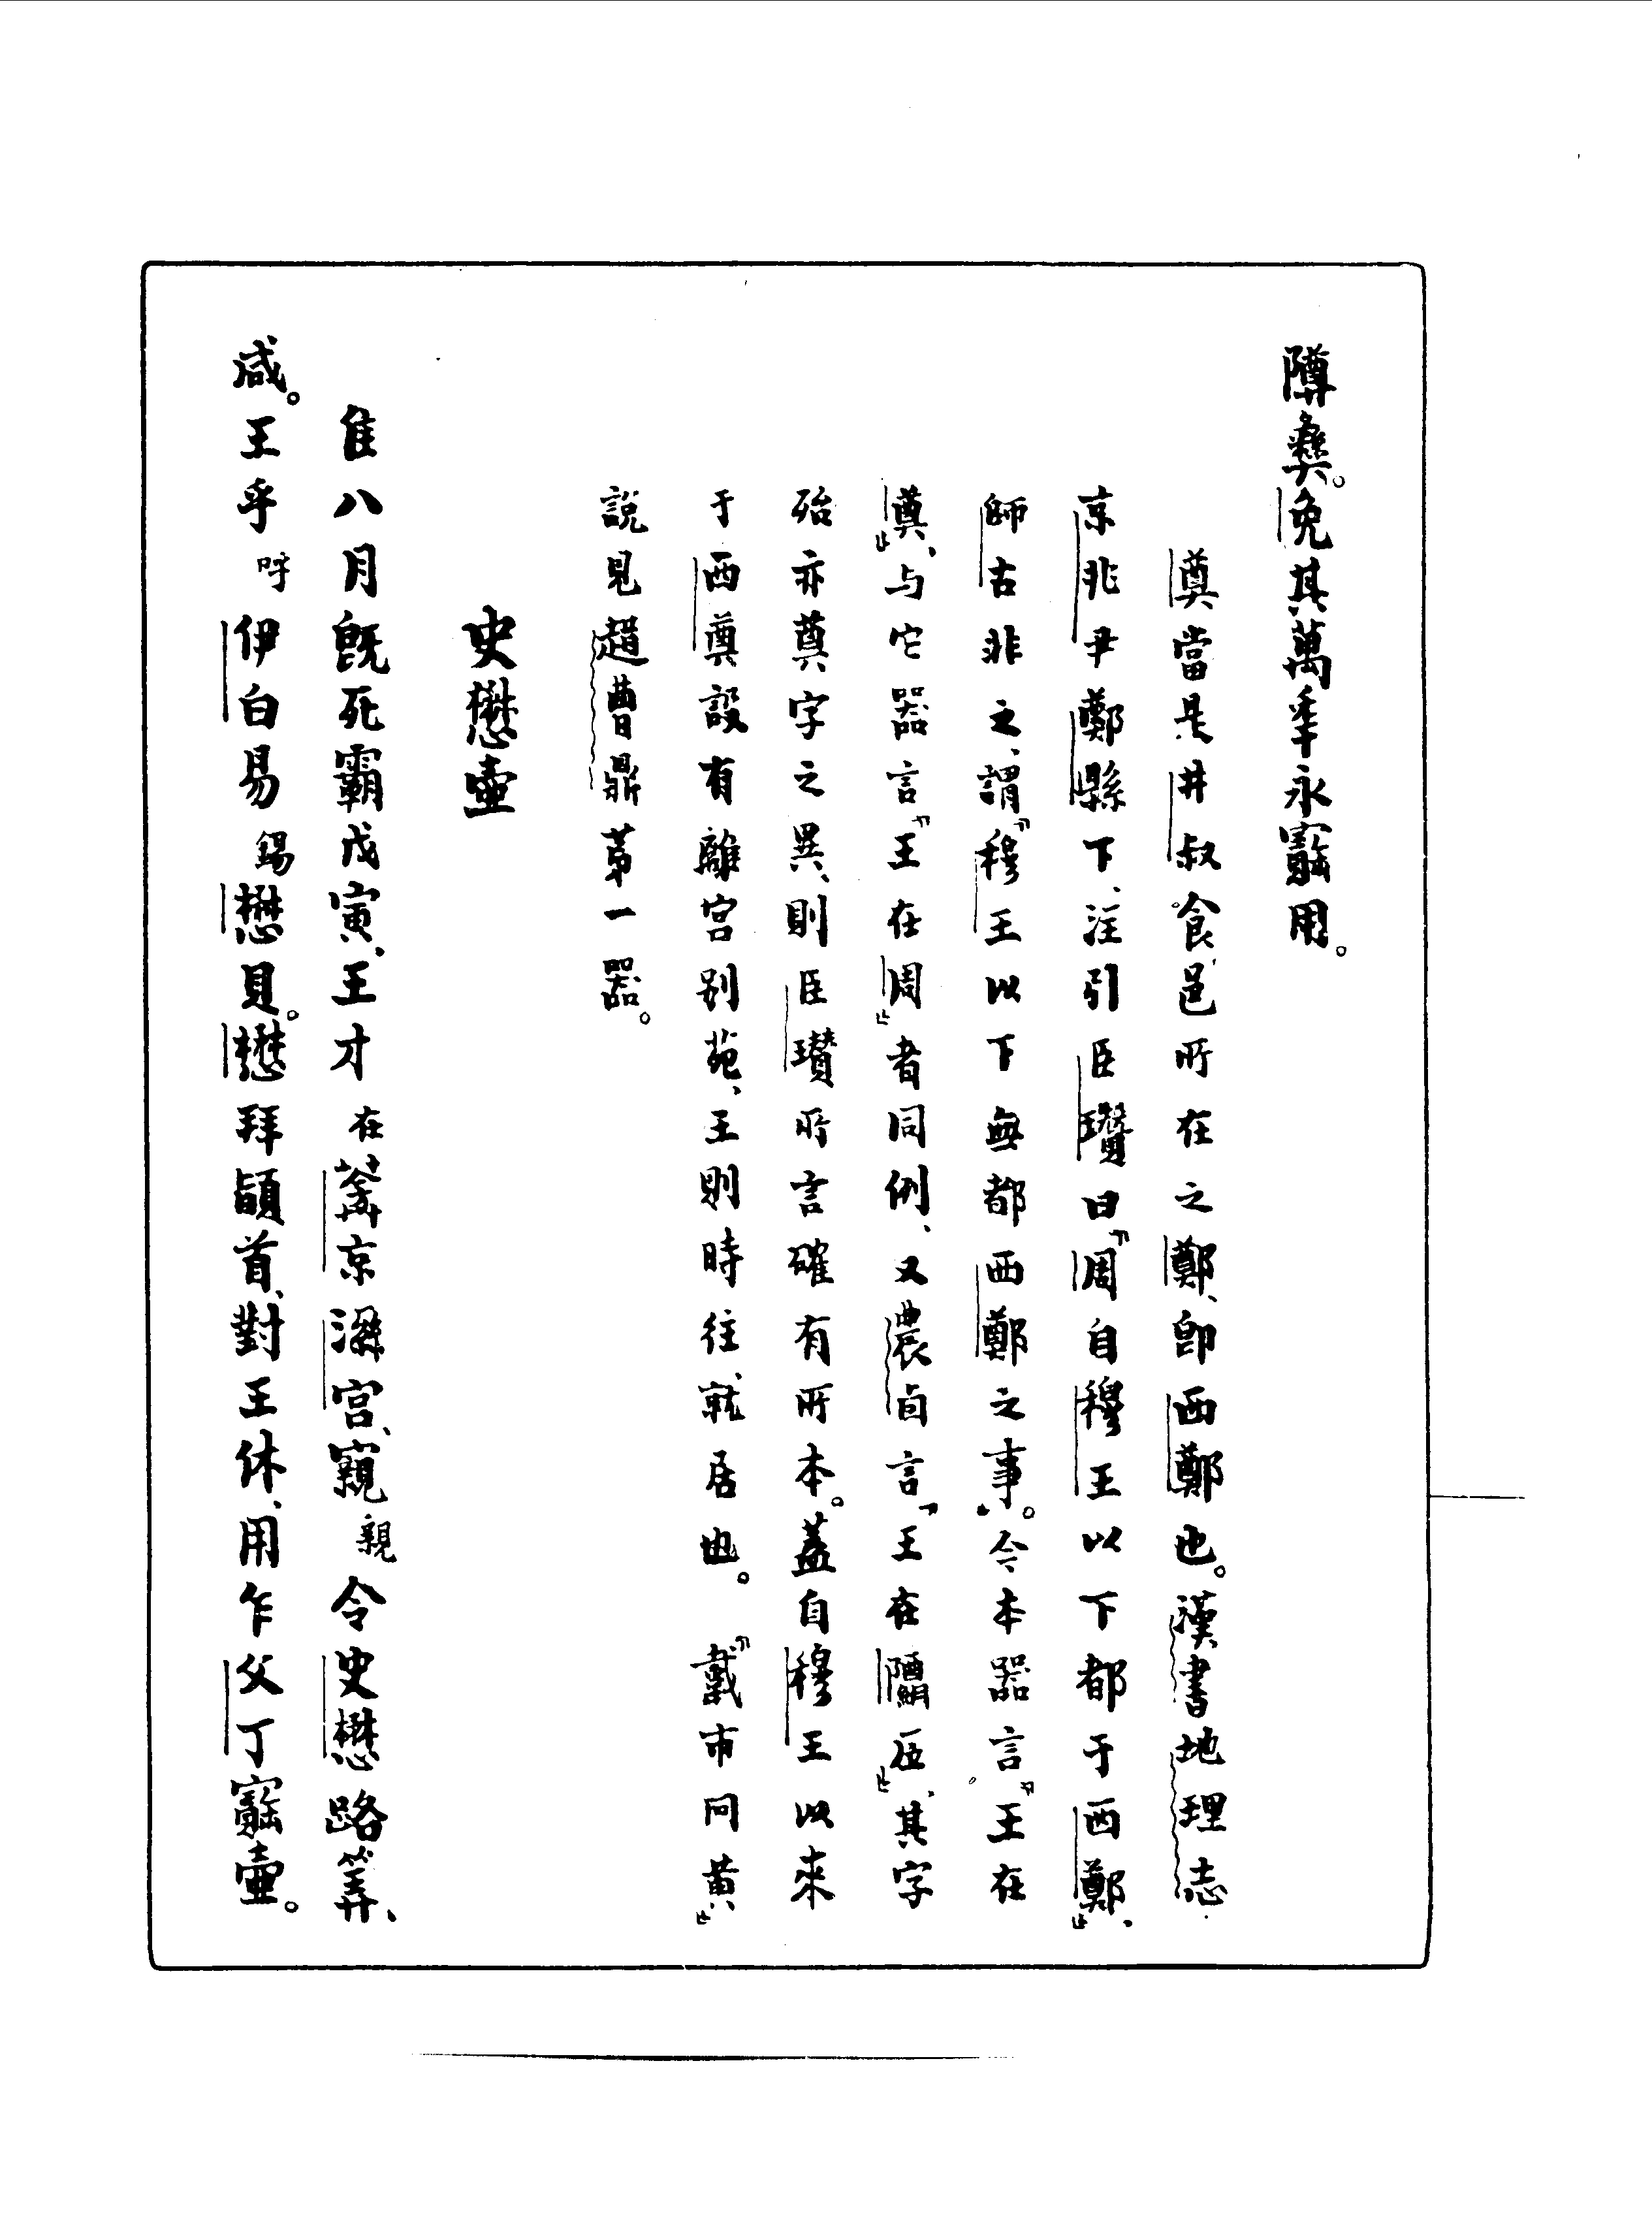 䵼彝。免其萬年永寶用。
奠當是井叔食邑所在之鄭、即西鄭也。漢書地理志
京兆尹鄭縣下、注引臣瓚曰『周自穆王以下都于西鄭』、
師古非之、謂『穆王以下無都西鄭之事』。今本器言『王在
奠』、与它器言『王在周』者同例、又農卣言『王在𨺉应』、其字
殆亦奠字之異、則臣瓚所言確有所本。蓋自穆王以來
于西奠設有離宮別苑、王則時往就居也。『戴市冋黄』
說見趞曹鼎第一器。
史懋壺
隹八月既死霸戊寅、王才在莽京溼宮、寴親令史懋路筭、
咸。王乎呼伊白易錫懋貝。懋拜䭫首、對王休、用乍父丁寶壺。